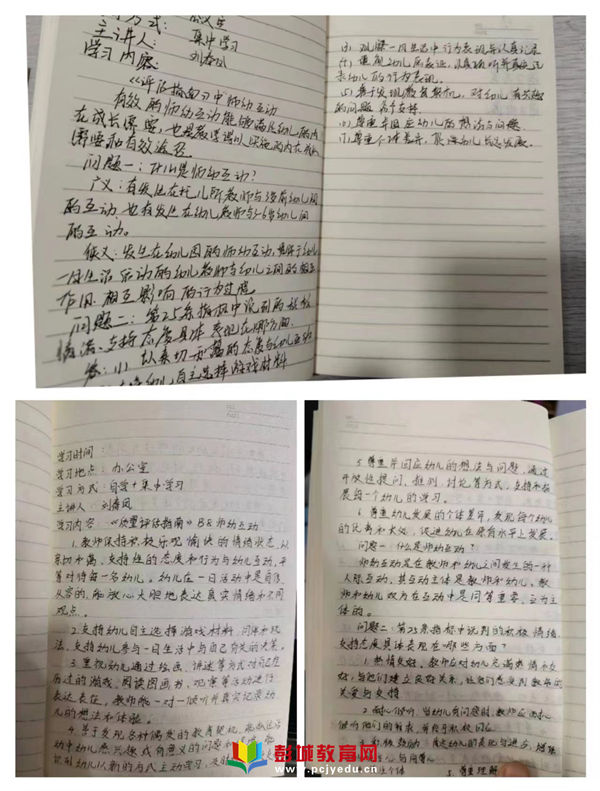 学习方式：集中学习
主讲人：刘春凤
学习内容：
《评估指南》中师幼互动
有效的师幼互动能够满足幼儿的内
在成长需要，也是教师
需要和有效途径
问题一：什么是师幼互动？
广义：有发生在托儿所教师与婴幼儿间
的互动，也有发生在幼儿教师与3-6岁幼儿间
的互动。
狭义：发生在幼儿园的师幼互动，贯穿于幼儿
一日生活活动的幼儿教师与幼儿之间的相互
作用、相互影响的行为过程
问题二：第25条指标中说到的积极
情绪、支持态度具体表现在哪方面
答：(1) 以亲切和蔼的态度与幼儿互动
幼儿自主选择游戏材料
(3) 观察一日生活中行为表现并认真记录
(4) 重视幼儿的表征，认真倾听并真实记
录幼儿的行为表现。
(5) 善于发现教育契机，对幼儿有兴趣
的问题给予支持
(6) 尊重并回应幼儿的想法与问题
(7) 尊重个体差异，促进幼儿
学习时间：
学习地点：办公室
学习方式：自学+集中学习
主讲人：刘春凤
学习内容：《质量评估指南》B8师幼互动
1. 教师保持积极乐观愉快的情绪状态，以
亲切和蔼、支持性的态度和行为与幼儿互动，平
等对待每一名幼儿。幼儿在一日活动中是自信、
从容的，能放心大胆地表达真实情绪和不同
观点。
2. 支持幼儿自主选择游戏材料、同伴和玩
法，支持幼儿参与一日生活中与自己有关的决策。
3. 重视幼儿通过绘画、讲述等方式对自己经
历过的游戏、阅读图画书、观察等活动进行
表达表征，教师能一对一倾听并真实记录幼
儿的想法和体验。
4. 善于发现各种偶发的教育契机，能抓住活
动中幼儿感兴趣或有意义的问题和情境，能
识别幼儿以新的方式主动学习，及时
5. 尊重并回应幼儿的想法与问题，通过
开放性提问、推测、讨论等方式，支持和拓
展每一个幼儿的学习。
6. 尊重幼儿发展的个体差异，发现每个幼儿
的优势和长处，促进幼儿在原有水平上发展。
问题一：什么是师幼互动？
师幼互动是在教师和幼儿之间发生的一种
人际互动，其互动主体是教师和幼儿。教
师和幼儿双方在互动中是同等重要、互为主
体的。
问题二：第25条指标中说到的积极情绪
支持态度具体表现在哪些方面？
1. 热情友好，教师应对幼儿充满热情和友
好，与他们建立良好关系，让他们感受到教师的
关爱与支持
2. 耐心倾听：当幼儿有问题时，教师应耐心
倾听他们的
3. 积极鼓励
心与自尊心
个体
5. 尊重理解
彭城教育网
www.pcjyedu.cn